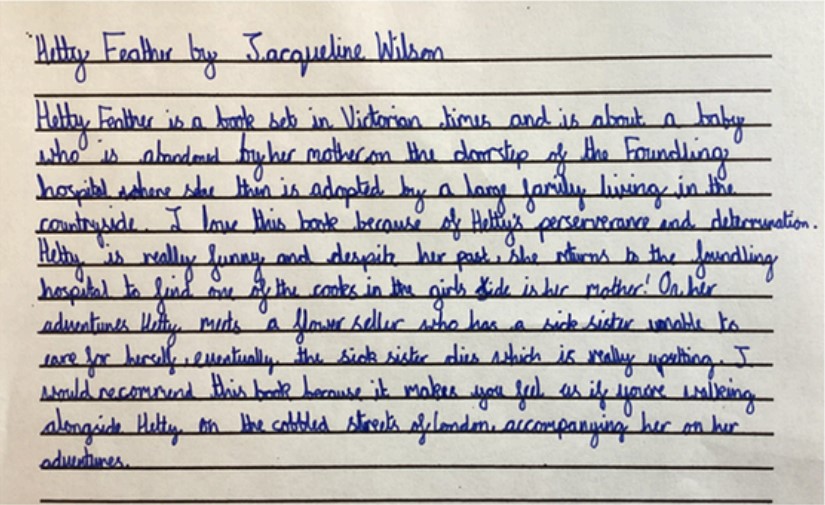 Hetty Feather by Jacqueline Wilson
Hetty Feather is a book set in Victorian times and is about a baby
who is abandoned by her mother on the doorstep of the Foundling
hospital where she then is adopted by a large family living in the
countryside. I love this book because of Hetty's perserverance and determination.
Hetty is really funny and despite her past, she returns to the foundling
hospital to find one of the cooks in the girls side is her mother! On her
adventures Hetty meets a flower seller who has a sick sister unable to
care for herself, eventually, the sick sister dies which is really upsetting. I
would recommend this book because it makes you feel as if youre walking
alongside Hetty on the cobbled streets of London, accompanying her on her
adventures.